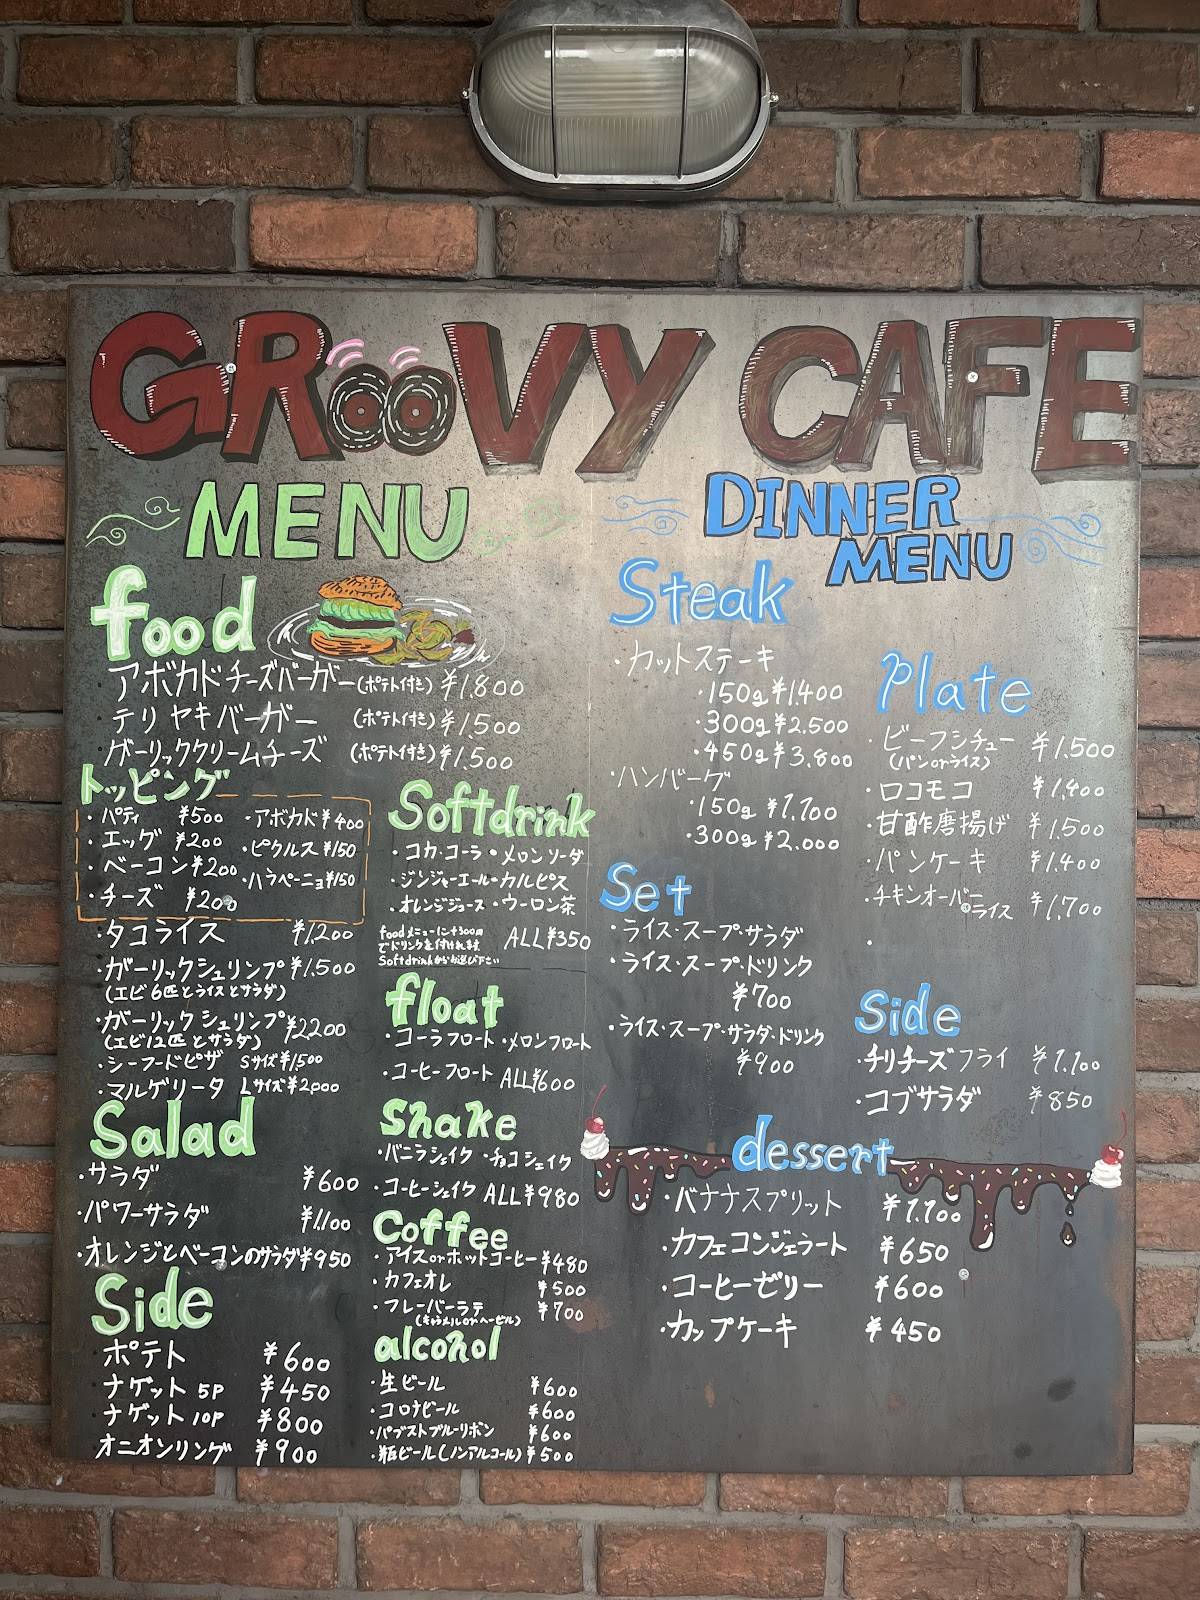 GROOVY CAFE
MENU
food
アボカドチーズバーガー(ポテト付き) ¥1.800
テリヤキバーガー (ポテト付き) ¥1.500
ガーリッククリームチーズ (ポテト付き) ¥1.500
トッピング
・パティ ¥500
・エッグ ¥200
・ベーコン ¥200
・チーズ ¥200
・アボカド ¥400
・ピクルス ¥150
・ハラペーニョ ¥150
・タコライス ¥1.200
・ガーリックシュリンプ ¥1.500
(エビ6匹とライスとサラダ)
・ガーリックシュリンプ ¥2200
(エビ12匹とサラダ)
・シーフードピザ Sサイズ ¥1,500
・マルゲリータ Lサイズ ¥2000
Salad
・サラダ ¥600
・パワーサラダ ¥1.100
・オレンジとベーコンのサラダ ¥950
Side
ポテト ¥600
ナゲット 5P ¥450
ナゲット 10P ¥800
オニオンリング ¥900
Softdrink
・コカ・コーラ・メロンソーダ
・ジンジャーエール・カルピス
・オレンジジュース・ウーロン茶
foodメニューに+300円
でドリンクを付けれます
Softdrinkからお選び下さい
ALL ¥350
float
・コーラフロート・メロンフロート
・コーヒーフロート ALL ¥600
Shake
・バニラシェイク・チョコシェイク
・コーヒーシェイク ALL ¥980
Coffee
・アイスorホットコーヒー ¥480
・カフェオレ ¥500
・フレーバーラテ ¥700
(キャラメルorヘーゼル)
alcohol
・生ビール ¥600
・コロナビール ¥600
・パブストブルーリボン ¥600
・瓶ビール(ノンアルコール) ¥500
DINNER
MENU
Steak
・カットステーキ
・150g ¥1.400
・300g ¥2.500
・450g ¥3.800
・ハンバーグ
・150g ¥1.100
・300g ¥2.000
Set
・ライス・スープ・サラダ
・ライス・スープ・ドリンク
¥700
・ライス・スープ・サラダ・ドリンク
¥900
Plate
・ビーフシチュー ¥1.500
(パンorライス)
・ロコモコ ¥1.400
・甘酢唐揚げ ¥1.500
・パンケーキ ¥1.400
・チキンオーバー
ライス ¥1.700
・
Side
・チリチーズフライ ¥1.100
・コブサラダ ¥850
dessert
・バナナスプリット ¥1.100
・カフェコンジェラート ¥650
・コーヒーゼリー ¥600
・カップケーキ ¥450